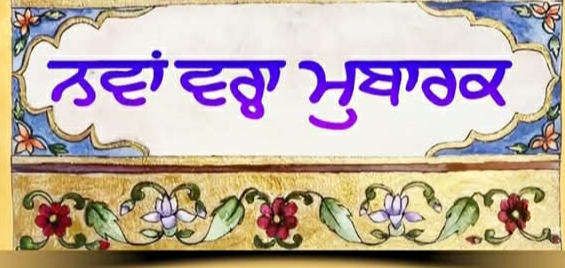 ਨਵਾਂ ਵਰ੍ਹਾ ਮੁਬਾਰਕ